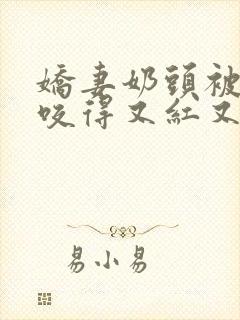 嬌妻奶頭被
咬得又紅又
易小易